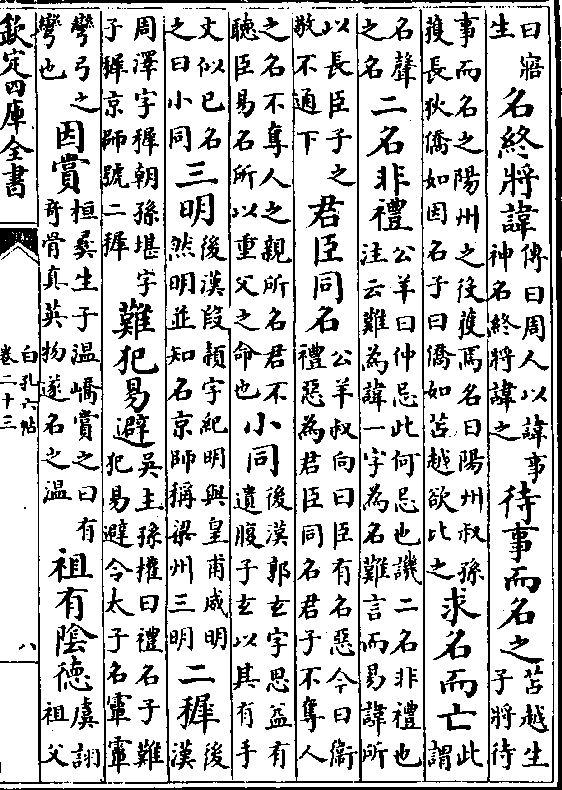 曰寤
生
名終將諱
傳曰周人以諱事
神名終將諱之
待事而名之
苫越生
子將待
事而名之陽州之役獲焉名曰陽州叔孫
獲長狄僑如因名子曰僑如苫越欲比之
求名而亡
此
謂
名聲
之名
二名非禮
公羊曰仲忌此何忌也譏二名非禮也
注云難為諱一字為名難言而易諱所
以長臣子之
敬不通下
君臣同名
公羊叔向曰臣有名惡今曰衛
禮惡為君臣同名君子不奪人
之名不奪人之親所名君不
聽臣易名所以重父之命也
小同
後漢郭玄字思益有
遺腹子玄以其有手
文似已名
之曰小同
三明
後漢段熲字紀明與皇甫威明
然明並知名京師稱梁州三明
二穉
後
漢
周澤字穉朝孫堪字
子穉京師號二穉
難犯易避
吳主孫權曰禮名子難
犯易避今太子名
彎弓之
彎也
因賞
桓彞生子温嶠賞之曰有
奇骨真英物遂名之温
祖有陰德
虞詡
祖父
欽定四庫全書
白孔六帖
卷二十三
八